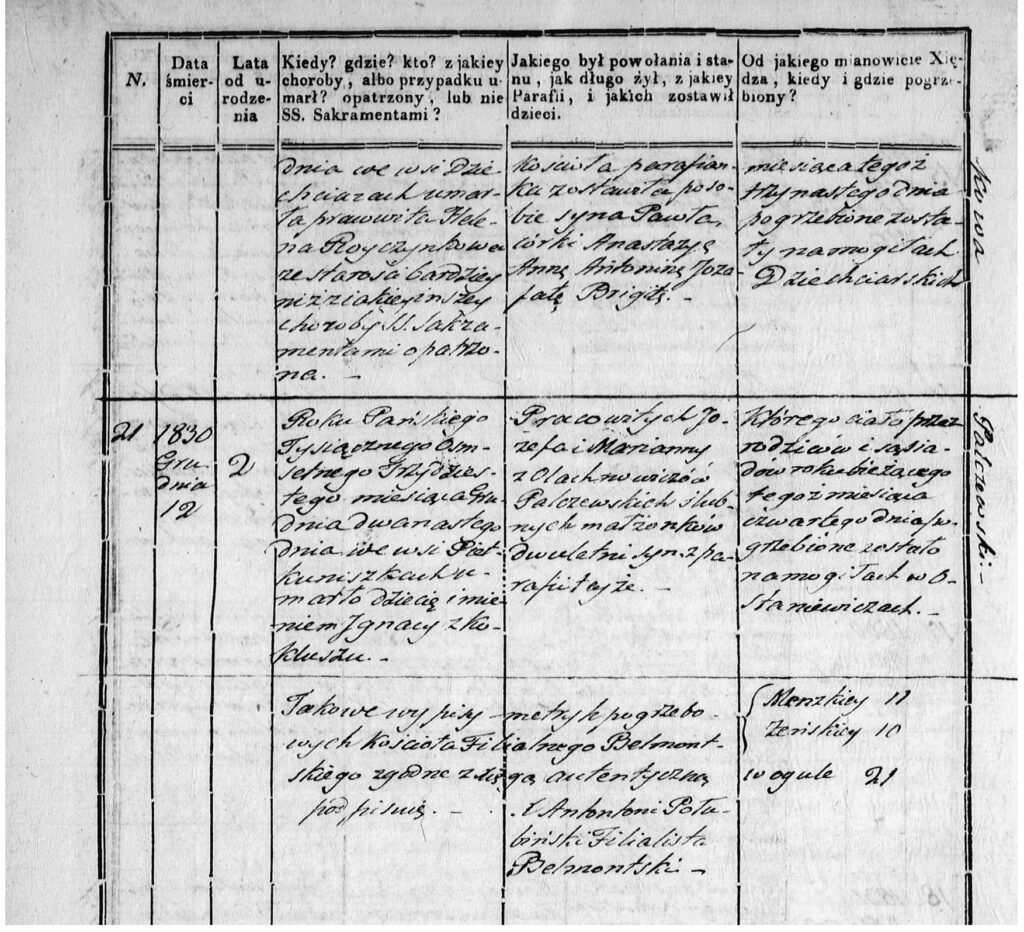 N.
Data
śmier-
ci
Lata
od u-
rodze-
nia
Kiedy? gdzie? kto? z jakiey
choroby, albo przypadku u-
marł? opatrzony, lub nie
SS. Sakramentami?
Jakiego był powołania i sta-
nu, jak długo żył, z jakiey
Parafii, i jakich zostawił
dzieci.
Od jakiego mianowicie Xię-
dza, kiedy i gdzie pogrze-
biony?
dnia we wsi Dzie-
chciarach umar-
ła pracowita Hele-
na Royczynkowa
ze starości bardziey
niż z iakieyinszey
choroby SS. Sakra-
mentami opatrzo-
na. -
kościoła parafian-
ka zostawiła poso-
bie syna Pawła,
córki Anastazyę
Annę Antoninę Joza-
fatę Brigitę. -
miesiąca tegoż
trzynastego dnia
pogrzebione zosta-
ły na mogiłach
Dziechciarskich
kowa
21
1830
Gru
dnia
12
2
Roku Pańskiego
Tysiącznego Osm-
setnego Trzydzies-
tego miesiąca Gru
dnia dwunastego
dnia we wsi Piet-
kuniszkach u-
marło dziecię imie-
niem Ignacy z ko-
kluszu. -
Pracowitych Jo-
zefa i Marianny
z Olachnowiczów
Palczewskich ślub-
nych małżonków
dwuletni syn z pa-
rafii teyże. -
Którego ciało przez
rodziców i sąsia
dow roku bieżącego
tegoż miesiąca
czwartego dnia po-
grzebione zostało
na mogiłach w O-
staniewiczach. -
Palczewski. -
Takowe wypisy metryk pogrzebo
wych kościoła Filialnego Belmont-
skiego zgodne z xięgą autentyczną
podpisuię. -
X Antontoni Połu-
biński Filialista
Belmontski -
Menzkiey 11
Żeńskiey 10
w ogule 21